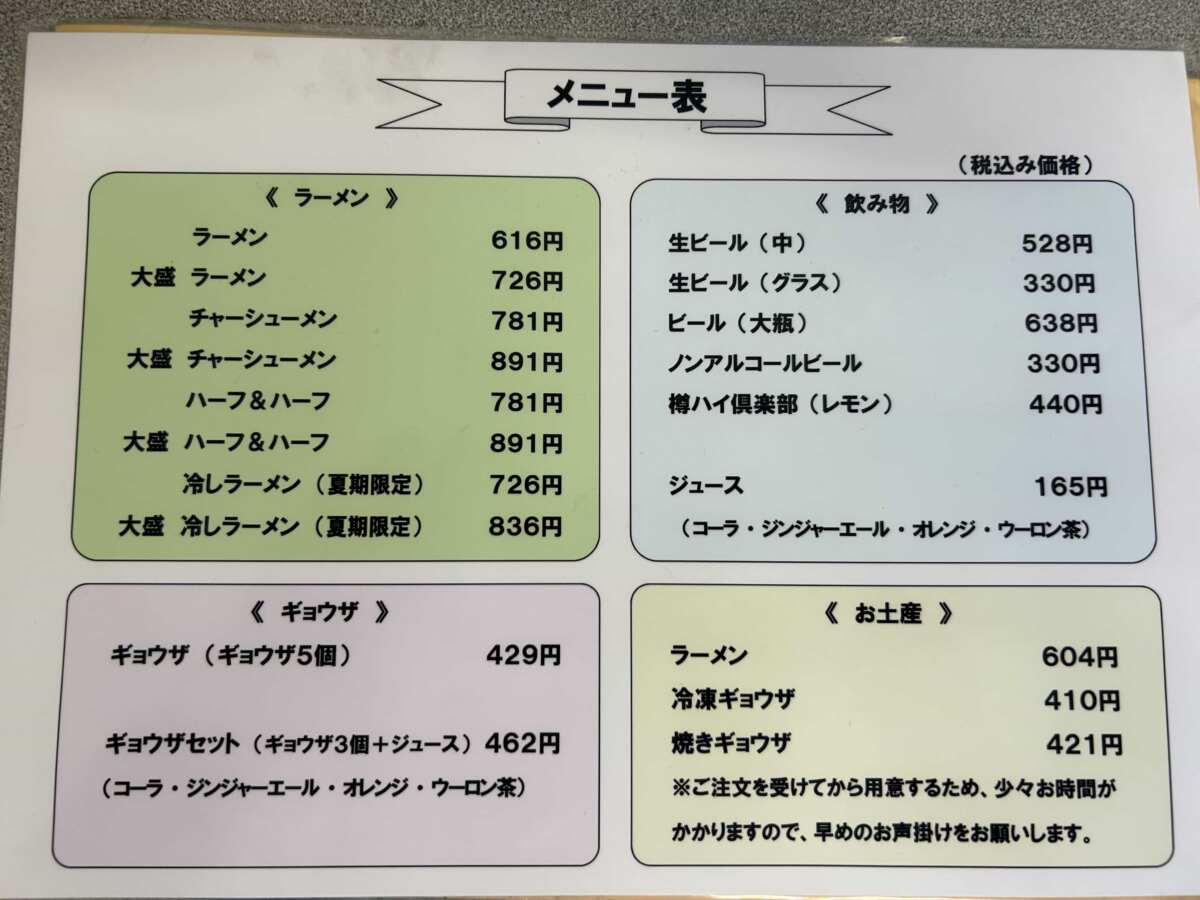 メニュー表
（税込み価格）
《 ラーメン 》
ラーメン 616円
大盛 ラーメン 726円
チャーシューメン 781円
大盛 チャーシューメン 891円
ハーフ＆ハーフ 781円
大盛 ハーフ＆ハーフ 891円
冷しラーメン（夏期限定） 726円
大盛 冷しラーメン（夏期限定） 836円
《 飲み物 》
生ビール（中） 528円
生ビール（グラス） 330円
ビール（大瓶） 638円
ノンアルコールビール 330円
樽ハイ倶楽部（レモン） 440円
ジュース 165円
（コーラ・ジンジャーエール・オレンジ・ウーロン茶）
《 ギョウザ 》
ギョウザ（ギョウザ5個） 429円
ギョウザセット（ギョウザ3個＋ジュース） 462円
（コーラ・ジンジャーエール・オレンジ・ウーロン茶）
《 お土産 》
ラーメン 604円
冷凍ギョウザ 410円
焼きギョウザ 421円
※ご注文を受けてから用意するため、少々お時間が
かかりますので、早めのお声掛けをお願いします。